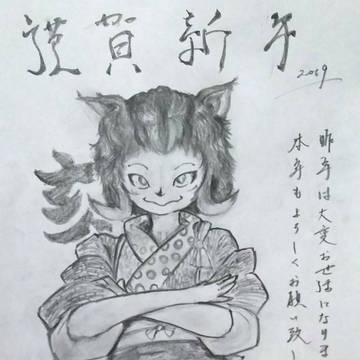 謹賀新年
2019
昨年は大変お世話になりま
本年もよろしくお願い致